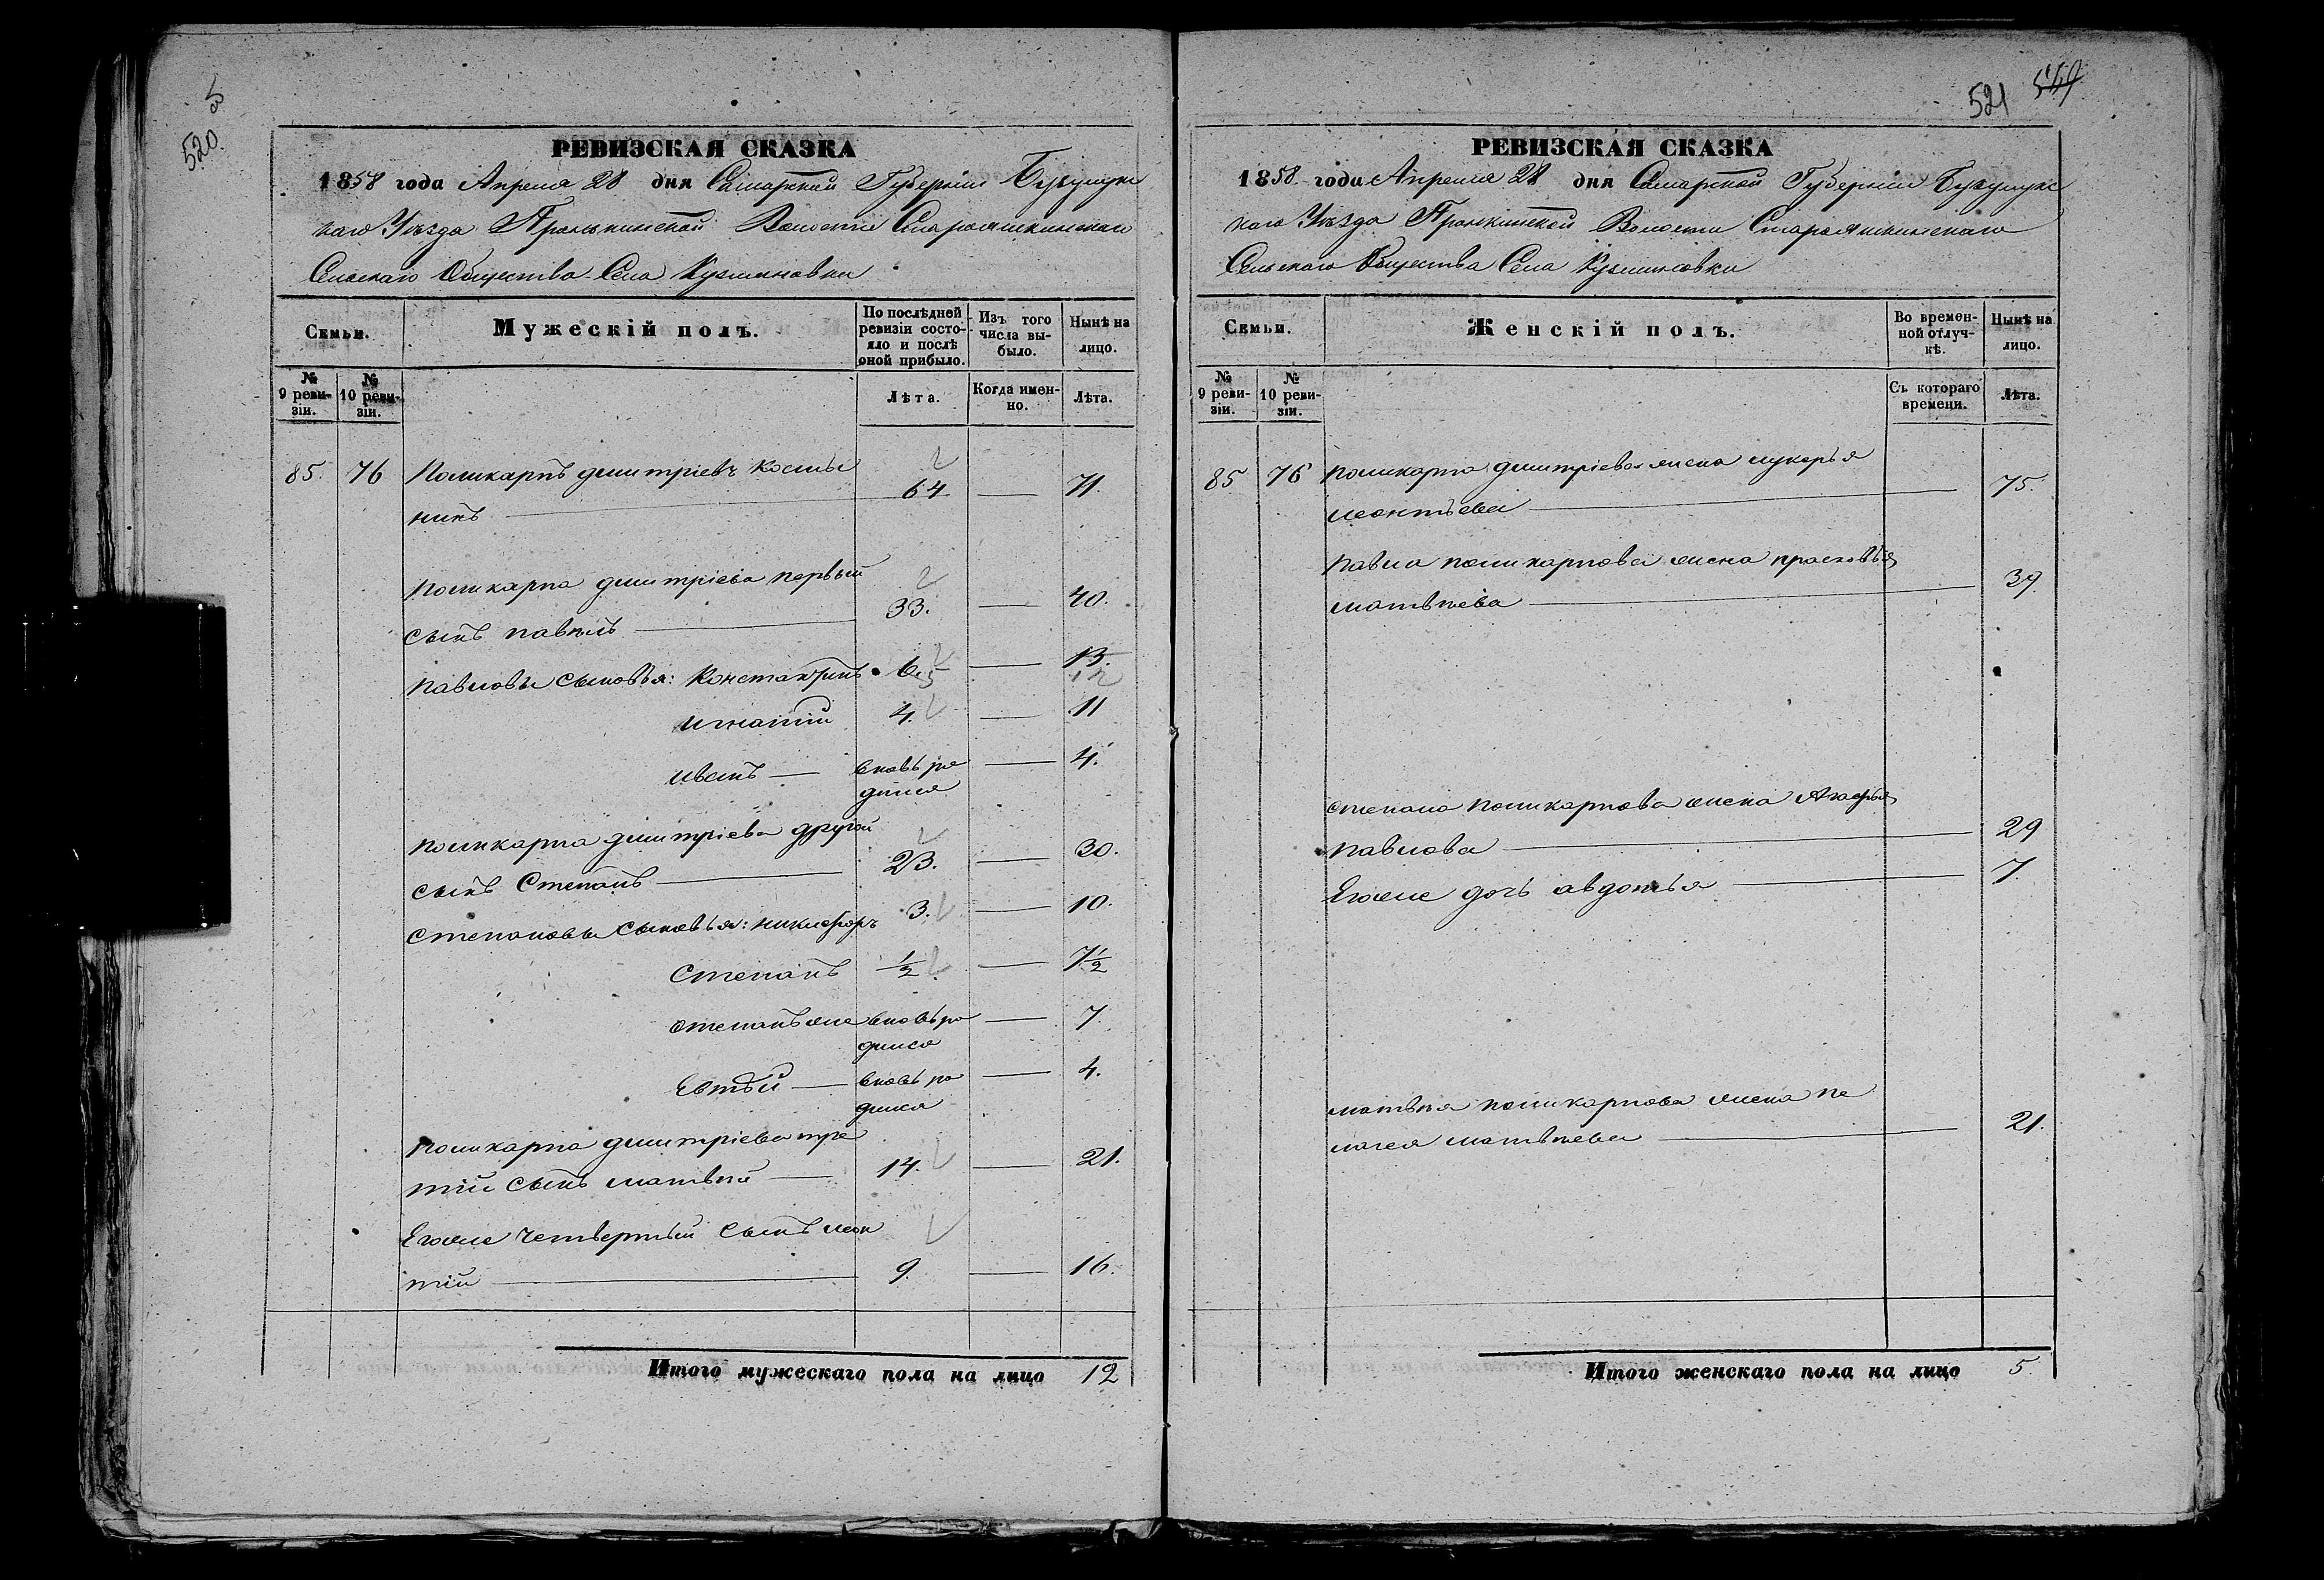 520
РЕВИЗСКАЯ СКАЗКА
1858 года Апреля 28 дня Самарской Губерніи Бузулукс
каго Уѣзда Пронькинской Волости Староашкинскаго
Сельскаго Общества Села Кузминовки
Семьи.
Мужескій полъ.
По послѣдней ревизіи состояло и послѣ оной прибыло.
Изъ того числа выбыло.
Нынѣ на лицо.
№ 9 ревизіи.
№ 10 ревизіи.
Лѣта.
Когда именно.
Лѣта.
85. 76 Поликарпъ дмитріевъ Косты
нинъ 64 71.
Поликарпа дмитріева первый
сынъ павелъ 33. 40.
Павловы сыновья: Константинъ 6. 5 13. 12
игнатій 4. 11
иванъ вновь ро 4.
дился
поликарпа дмитріева другой
сынъ Степанъ 23. 30.
Степановы сыновья: никифоръ 3. 10.
Степанъ 1/2 7 1/2
степанъ же вновь ро 7.
дился
вновь ро 4.
дился
Поликарпа дмитріева тре
тій сынъ матвѣй 14. 21.
Егоже четвертый сынъ леон
тій 9. 16.
Итого мужескаго пола на лицо 12
521
РЕВИЗСКАЯ СКАЗКА
1858 года Апреля 28 дня Самарской Губерніи Бузулукс
каго Уѣзда Пронькинской Волости Староашкинскаго
Сельскаго Общества Села Кузминовки
Семьи.
Женскій полъ.
Во временной отлучкѣ.
Нынѣ на лицо.
№ 9 ревизіи.
№ 10 ревизіи.
Съ котораго времени.
Лѣта.
85 76 Поликарпа дмитріева жена лукерья
леонтьева 75.
Павла поликарпова жена прасковья
матвѣева 39.
степана поликарпова жена Агафья
павлова 29
Егоже дочь авдотья 7
матвѣя поликарпова жена пе
лагея матвѣева 21.
Итого женскаго пола на лицо 5.